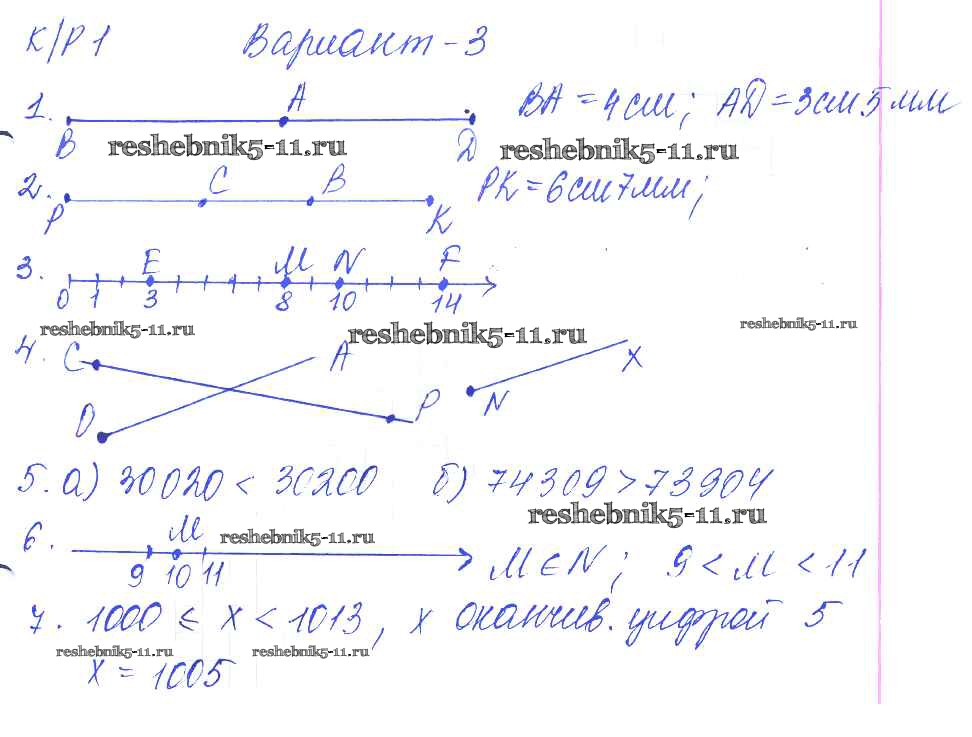 К/Р 1 Вариант-3
1. B A D BA = 4 см; AD = 3 см 5 мм
reshebnik5-11.ru reshebnik5-11.ru
2. P C B K PK = 6 см 7 мм;
3. E M N F
0 1 3 8 10 14
reshebnik5-11.ru reshebnik5-11.ru reshebnik5-11.ru
4. C A P X
D N
5. а) 30020 < 30200 б) 74309 > 73904
reshebnik5-11.ru
6. M reshebnik5-11.ru
9 10 11 M ∈ N; 9 < M < 11
7. 1000 ≤ x < 1013, x окончив. цифрой 5
reshebnik5-11.ru reshebnik5-11.ru
x = 1005